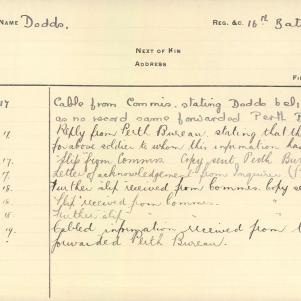 NAME Dodds. REG. &C. 16th Batt
NEXT OF KIN
ADDRESS
FI
17 Cable from Commis. stating Dodds bel
as no record same forwarded Perth B
17 Reply from Perth Bureau. stating that th
for above soldier to whom this information has
17. "Slip" from Commis. Copy sent Perth Bur
17 Letter of acknowledgement from Inquirer (P
18. Further slip received from Commes. Copy se
"Slip" received from Commes. "
18. Further slip " " "
19. Cabled information received from
forwarded Perth Bureau.